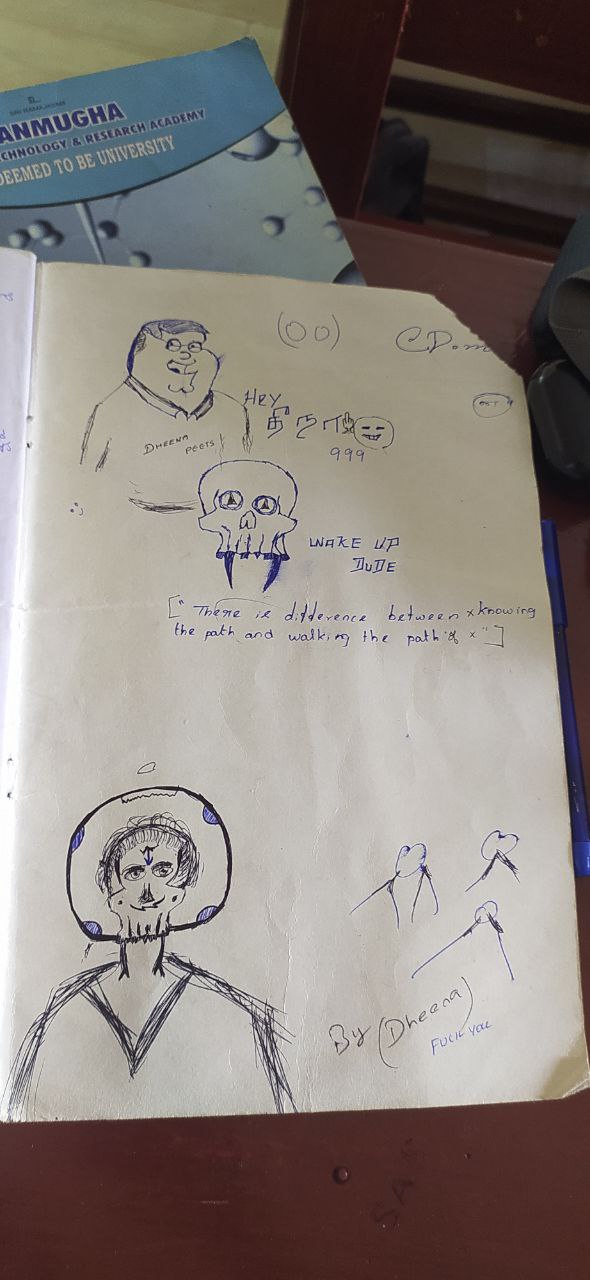 SRI RAMAJAYAM
ANMUGHA
CHNOLOGY & RESEARCH ACADEMY
DEEMED TO BE UNIVERSITY
Hey
DHEENA
PEETS
999
WAKE UP
DUDE
[" There is difference between x knowing
the path and walking the path x "]
By (Dheena)
FUCK YOU
SAT